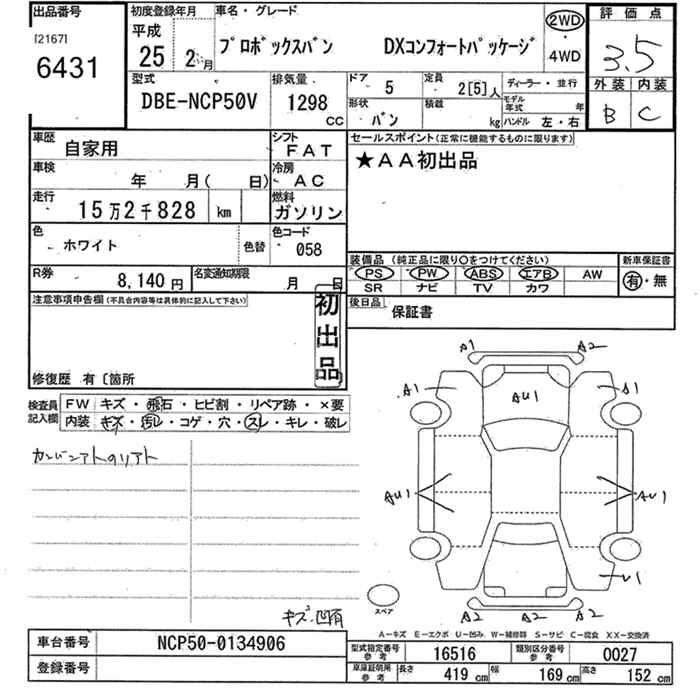 出品番号
[2167]
6431
初度登録年月
平成
25 2月
車名・グレード
プロボックスバン DXコンフォートパッケージ
2WD
・
4WD
評価点
3.5
外装 内装
B C
型式
DBE-NCP50V
排気量
1298
CC
ドア
5
定員
2[5]人
ディーラー・並行
形状
バン
積載
kg
モデル年式 年
ハンドル 左・右
車歴
自家用
シフト
FAT
車検
年 月( 日)
冷房
AC
走行
15万2千828 km
燃料
ガソリン
色
ホワイト
色替
色コード
058
R券
8,140円
名変通知期限
月 日
セールスポイント(正常に機能するものに限ります)
★AA初出品
装備品 (純正品に限り〇をつけてください)
PS PW ABS エアB AW
SR ナビ TV カワ
新車保証書
有・無
後日品
保証書
注意事項申告欄(不具合内容等は具体的に記入して下さい)
初出品
修復歴 有〔箇所
検査員
記入欄
FW キズ・飛石・ヒビ割・リペア跡・×要
内装 キズ・汚レ・コゲ・穴・スレ・キレ・破レ
カンバンアトのリアト
キズ・凹有
A1 A2
A1 AU1 A1
AU1 AU1
U1
A2 A2 A2
スペア
A−キズ E−エクボ U−凹み W−補修跡 S−サビ C−腐食 XX−交換済
車台番号
NCP50-0134906
登録番号
型式指定番号
参考
16516
類別区分番号
参考
0027
車庫証明用
参考
長さ 419 cm 幅 169 cm 高さ 152 cm